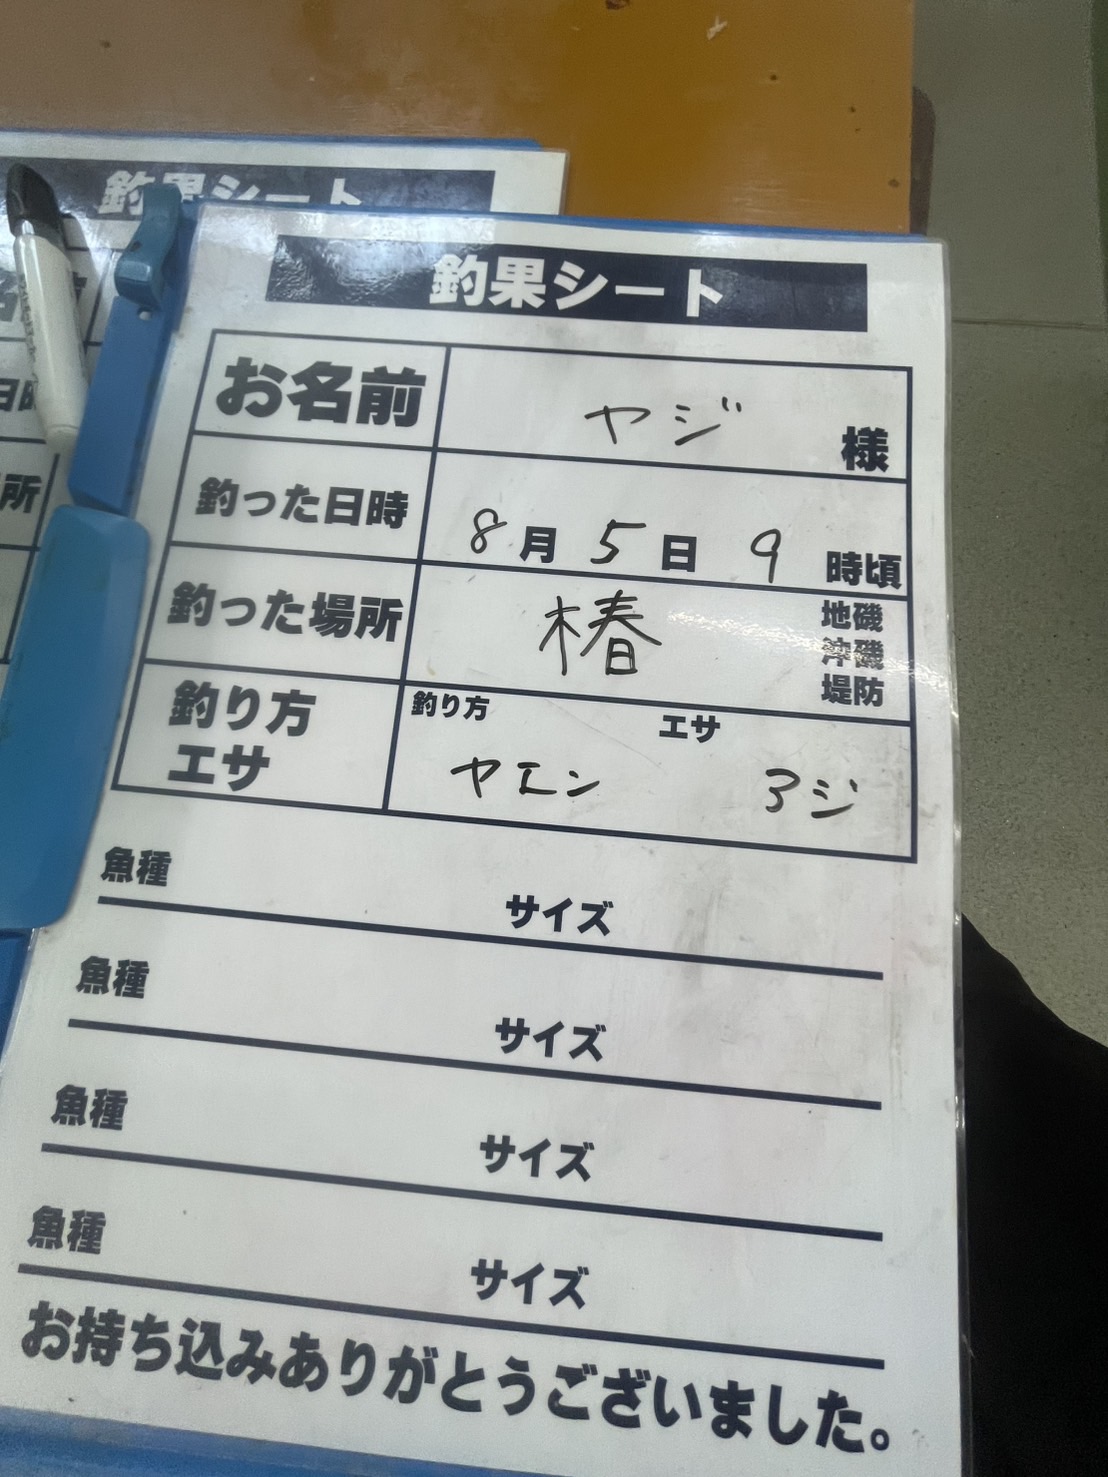 釣果シート
釣果シート
お名前 ヤジ 様
釣った日時 8月5日 9時頃
釣った場所 椿 地磯 沖磯 堤防
釣り方 エサ 釣り方 ヤエン エサ アジ
魚種 サイズ
魚種 サイズ
魚種 サイズ
魚種 サイズ
お持ち込みありがとうございました。